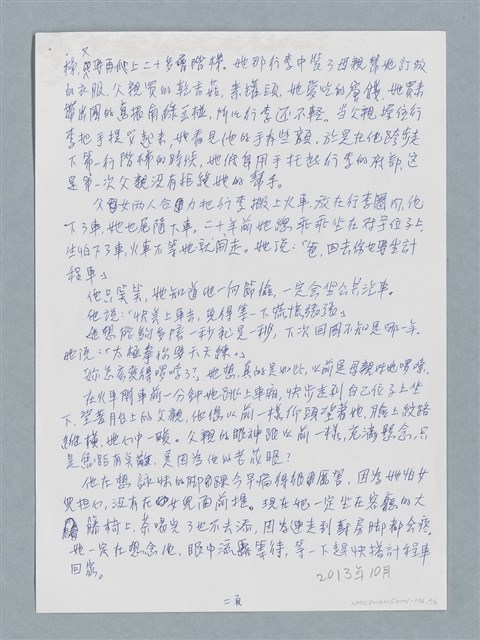 梯，又要再爬上二十多層階梯。她那行李中裝了母親幫她訂做
的衣服、父親買的乾香菇、素
帶出國的，所以行李还不輕。当父親握住行
李把手提起來，她看見他的手有些顫，於是在他跨步走
下第一行階梯的時候，她低身用手托起行李的底部，这
是第一次父親沒有拒絕她的幫手。
父女兩人合力把行李搬上火車，放在行李圈内，他
下了車，她也尾隨下車。二十年前她總乖乖坐在对号位子上，
生怕下了車，火車不等她就開走。她说：「爸，回去你也要坐計
程車」
他只笑笑，她知道他一向節儉，一定会坐公共汽車。
他説：「快点上車去，免得等一下慌慌張張」
她想能夠多陪一秒就是一秒，下次回國不知是哪一年。
她说：「太極拳你要天天練。」
妳怎么变得嘮叨了？她想，真的是如此，以前是母親对她嘮叨，
在火車開車前一分鐘她跳上車廂，快步走到自己位子上坐
下，望著月台上的父親，他像以前一樣仰頭望著她，臉上紋路
縱橫，她心中一酸。父親的眼神跟以前一樣，充滿懸念，只
是有，是因為他的老花眼？
他在想詠妹的脚踝今早痛得很厲害，因為她怕女
兒担心，沒有在女兒面前提。現在她一定坐在客廳的大
籐椅上，茶喝完了也不去添，因為連走到廚房脚都会疼。
她一定在想念他，眼中流露等待，等一下趕快搭計程車
回家。
2013年10月
二頁